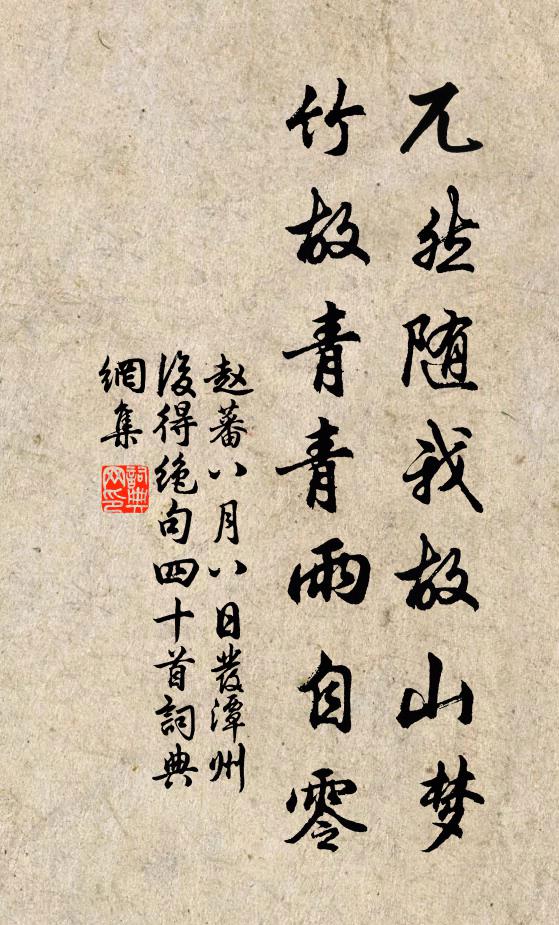 兀然随我故山梦
竹故青青雨自零
赵蕃八月八日發潭州
後得绝句四十首詞典
網集
詞典
网印